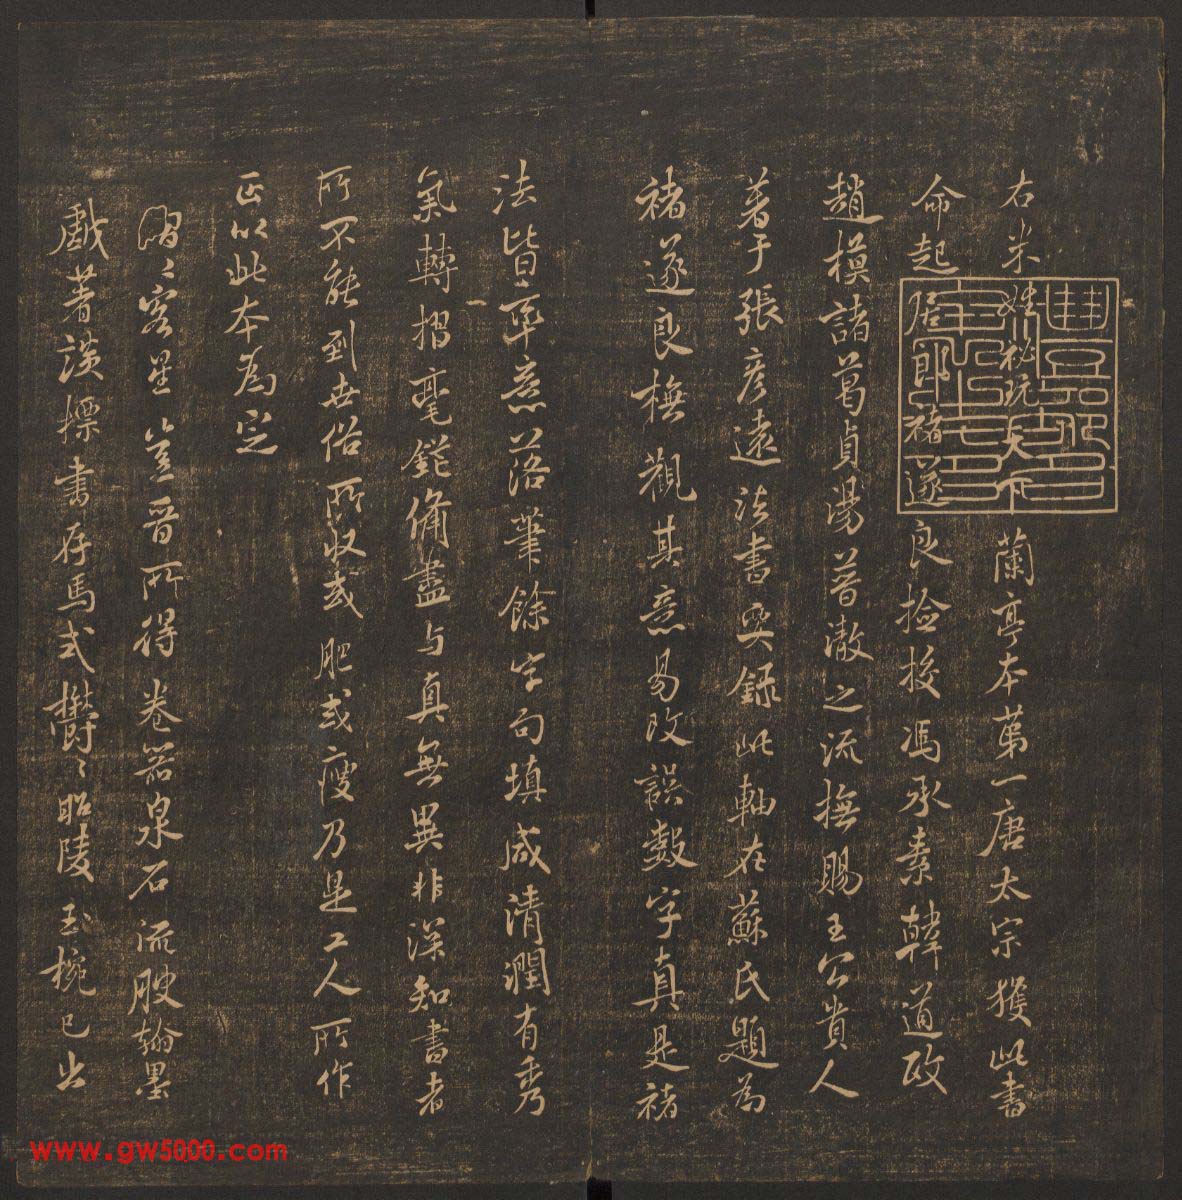 右米姓祕玩天下蘭亭本第一唐太宗獲此書
命起居郎褚遂良撿挍馮承素韓道政
趙模諸葛貞湯普澈之流撫賜王公貴人
著于張彥遠法書要錄此軸在蘇氏題為
褚遂良撫觀其意易改誤數字真是褚
法皆率意落筆餘字句填咸清潤有秀
氣轉摺毫鋩備盡与真無異非深知書者
所不能到世俗所收或肥或瘦乃是工人所作
正以此本為定
熠〻客星豈晉所得卷器泉石流腴翰墨
戲著談摽書存馬式鬱〻昭陵玉椀已出
www.gw5000.com